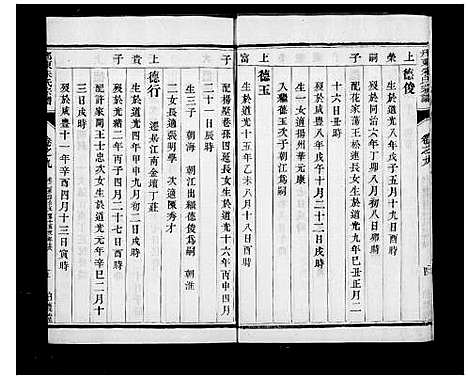 上 德俊
榮
歿於同治六年丁卯八月初八日卯時
配花家蕩王松連長女生於道光九年己丑正月二
十六日丑時
嗣
子
生於道光八年戊子十月十二日戌時
一女適揚州華元康
上 德玉
入繼德玉次子朝江爲嗣
富
生於道光八年八月十八日酉時
子
配楊墅巷孫四延長女生於道光十六年丙申四月
二十一日辰時
生三子 朝海 朝江出繼德俊爲嗣 朝淮
二女長適張明學 次適陳秀才
上 德行
遷居江南金壇丁莊
貴
生於道光十六年丙申九月初二日戌時
歿於光緒二年丙子四月二十七日酉時
子
配許家閘王士忠次女生於道光元年辛巳二月十
三日戌時
歿於咸豐十一年辛酉四月十三日寅時
卷之九